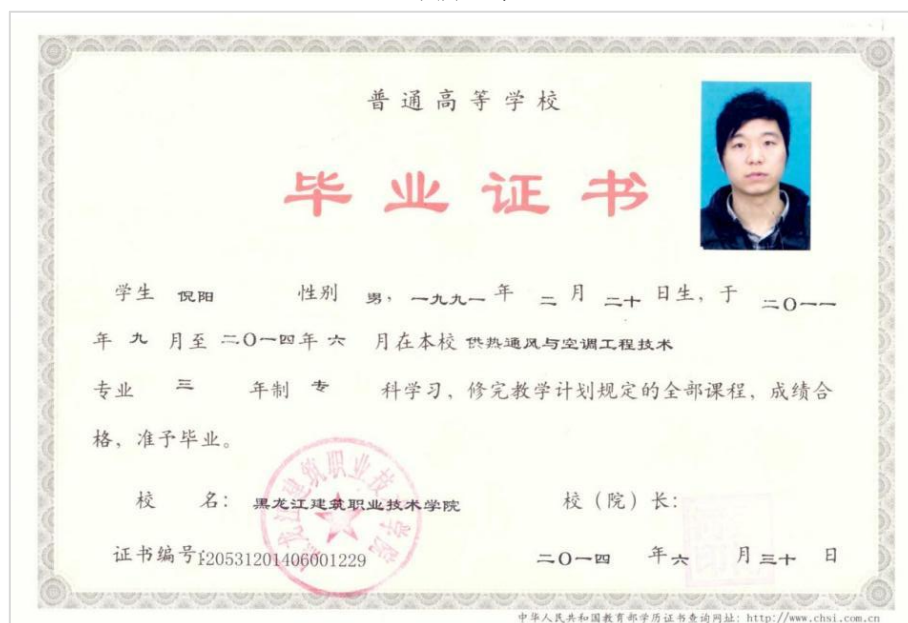 普通高等学校
毕业证书
学生 倪阳 性别 男，一九九一 年 二 月 二十 日生，于 二〇一一
年 九 月至 二〇一四年 六 月在本校 供热通风与空调工程技术
专业 三 年制 专 科学习，修完教学计划规定的全部课程，成绩合
格，准予毕业。
校 名： 黑龙江建筑职业技术学院 校（院）长：
证书编号:120531201406001229 二〇一四 年 六 月 三十 日
黑龙江建筑职业技术学院
中华人民共和国教育部学历证书查询网址：http://www.chsi.com.cn